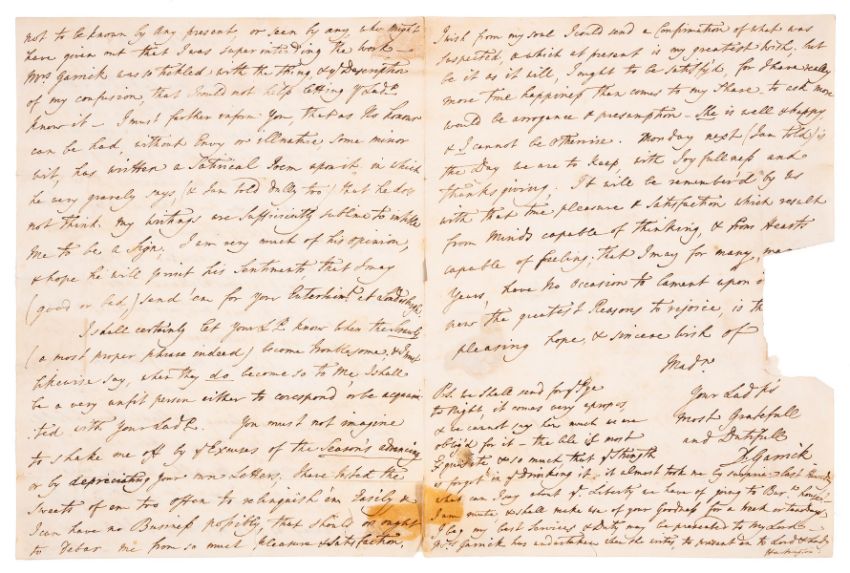 not to be known by any present, or seen by any, who might
have given out that I was superintending the work —
Mrs Garrick was so tickled with the thing & yr Description
of my confusion, that I could not help letting yr Ladp
know it — I must farther inform You, that as no honour
can be had, without Envy or illnature, some minor
wit, has written a Satirical Poem upon it, in which
he very gravely says, (& I am told dully too) that he does
not think my writings are sufficiently sublime to intitle
Me to be a Sign; I am very much of his opinion,
& hope he will print his Sentiments, that I may
(good or bad,) send 'em for your Entertainmt at Londesbgh.
I shall certainly let your Lp. know when the
(a most proper phrase indeed) become troublesome, & I must
likewise say, when they do become so to Me I shall
be a very unfit person either to corespond or be acquain
-ted with Your Ladp. You must not imagine
to shake me off by yr Excuses of the Season's advancing
or by depreciating your own Letters, I have tasted the
Sweets of em too often to relinquish em Easily &
I can have no Business possibly, that should or ought
to debar me from so much pleasure & satisfaction.
I wish from my soul I could send a Confirmation of what was
suspected, & which at present is my greatest wish, but
be it as it will, I ought to be satisfy'd, for I have really
more true happiness than comes to my Share. to ask more
would be arrogance & presumption — She is well & happy
& I cannot be otherwise. Monday next (I am told) is
the Day we are to keep with Joyfullness and
thanksgiving. It will be remember'd by Us
with that true pleasure & Satisfaction which result
from Minds capable of thinking, & from Hearts
capable of feeling; that I may for many, ma
Years, have No Occasion to lament upon
the greatest Reasons to rejoice, is th
pleasing hope, & sincere wish of
Madm
Your Ladp's
Most Gratefull
and Dutifull
D. Garrick
P.S. we shall send for ye
to Night, it comes very apropos,
& we cannot say how much we are
oblig'd for it — the Ale is most
Exquisite & so much that ye strength
is forgot in ye Drinking it. it almost took me by surprise last
what can I say about ye Liberty we have of going to Bur: house?
I am mute & shall make use of your goodness for a week or two
I beg my best Services & Duty may be presented to My Lord —
Mrs Garrick has undertaken when she writes, to present em to Lord & Lady
Hartington.